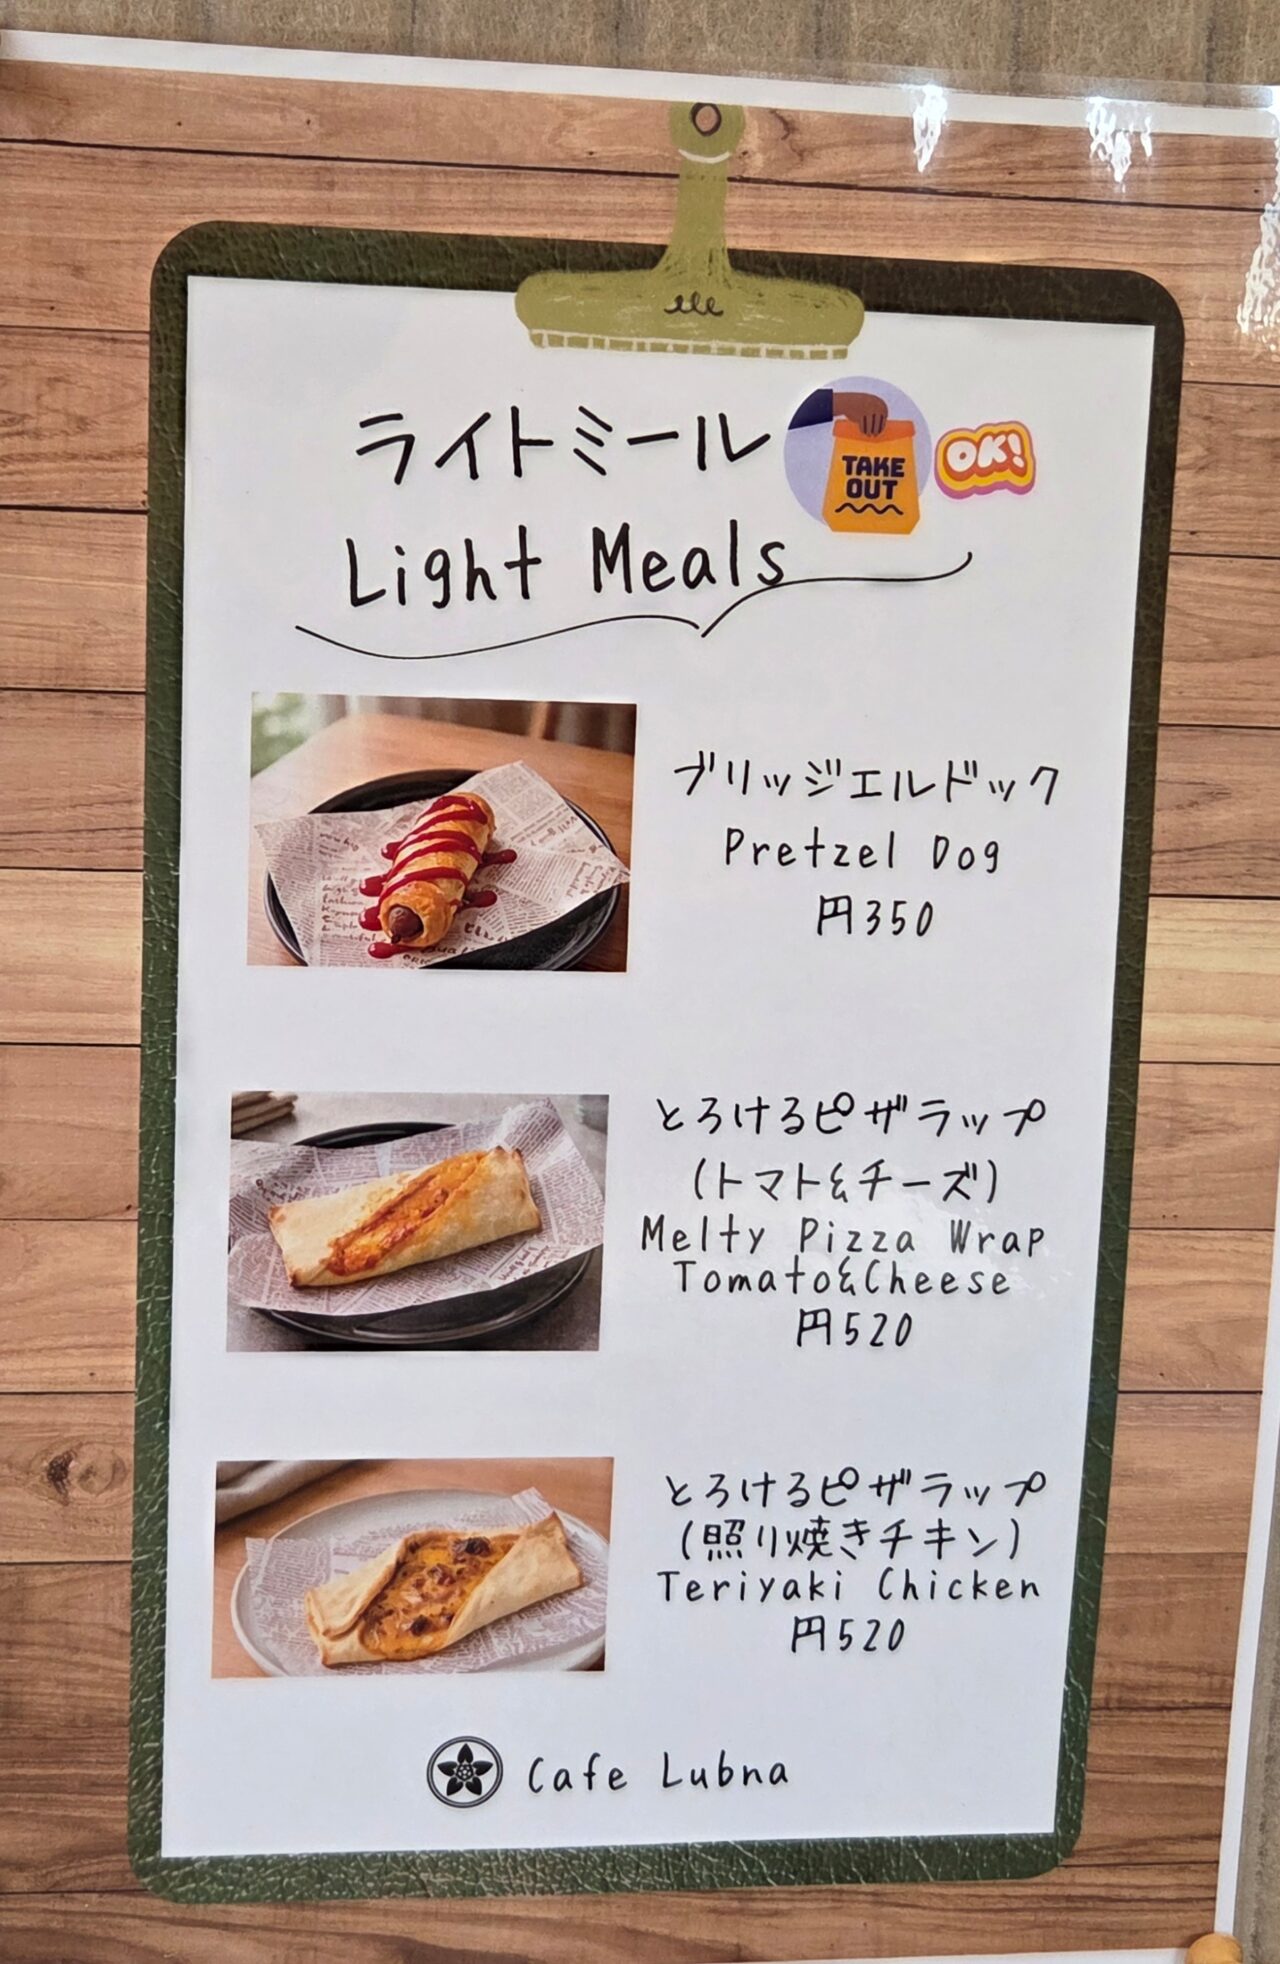 ライトミール
TAKE
OUT
OK!
Light Meals
ブリッジエルドック
Pretzel Dog
円350
とろけるピザラップ
(トマト&チーズ)
Melty Pizza Wrap
Tomato&Cheese
円520
とろけるピザラップ
(照り焼きチキン)
Teriyaki Chicken
円520
Cafe Lubna